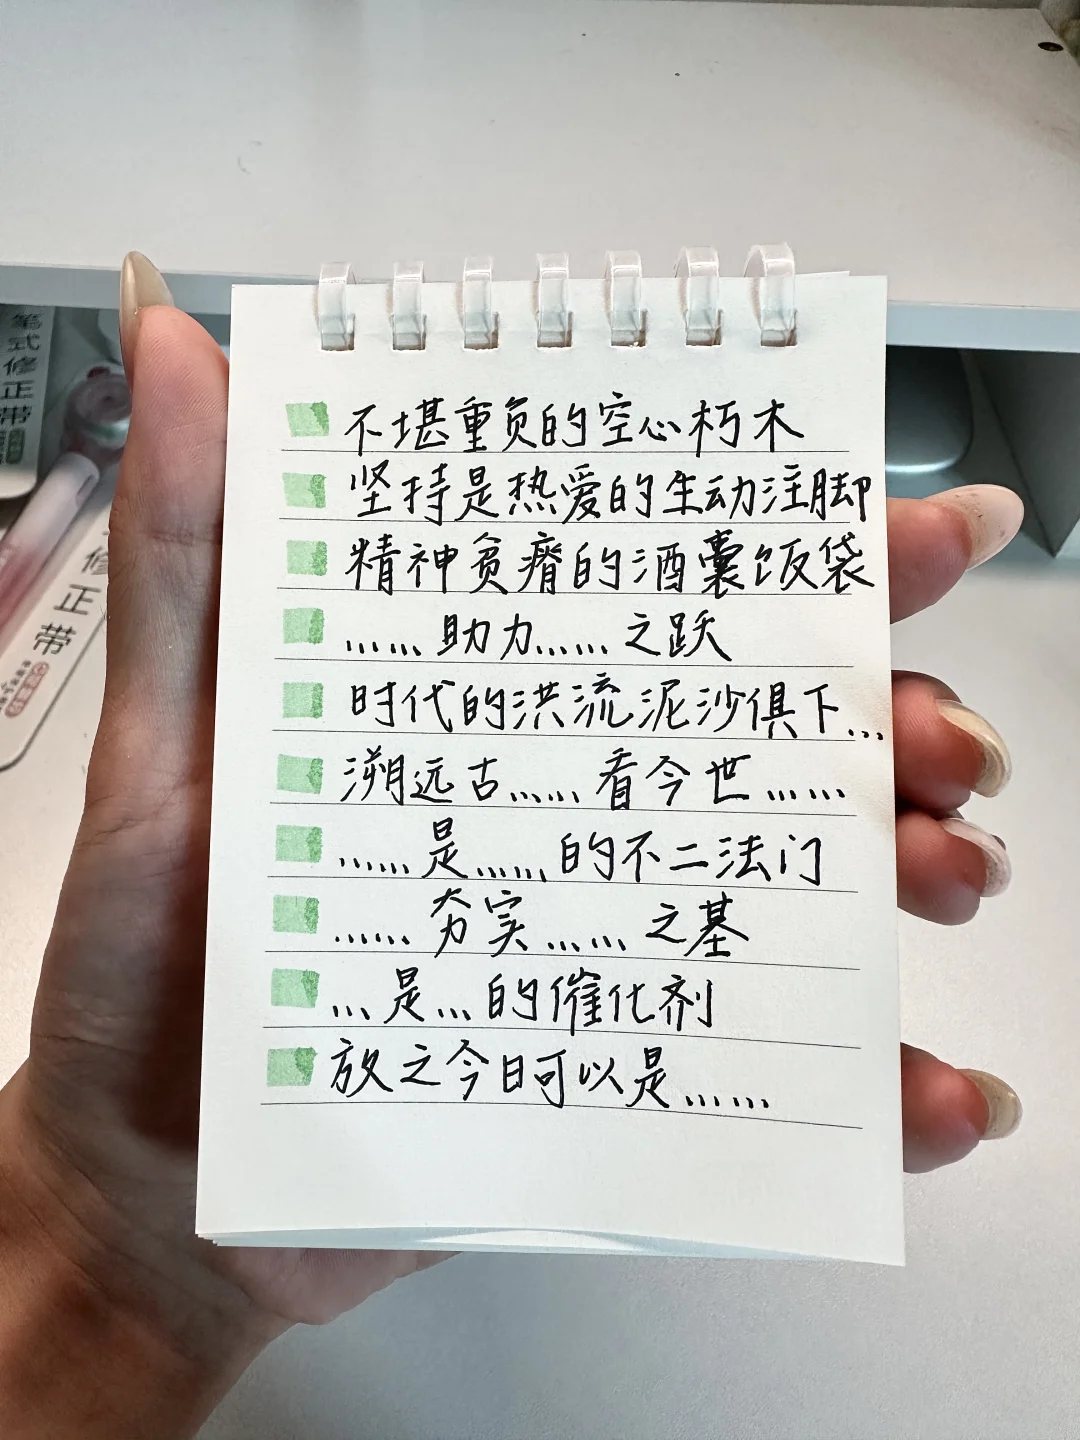 笔式修正带
修正带
不堪重负的空心朽木
坚持是热爱的生动注脚
精神贫瘠的酒囊饭袋
……助力……之跃
时代的洪流泥沙俱下…
溯远古……看今世……
……是……的不二法门
……夯实……之基
…是…的催化剂
放之今日可以是……